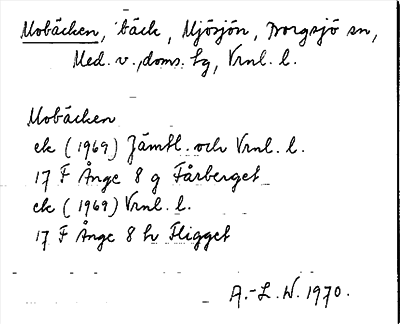 Mobäcken, bäck, Mjösjön, Borgsjö sn,
Med. v., doms. tg, Vrnl. l.
Mobäcken
ek (1969) Jämtl. och Vrnl. l.
17 F Ånge 8 g Fårberget
ek (1969) Vrnl. l.
17 F Ånge 8 h Fligget
A.-L. W. 1970.